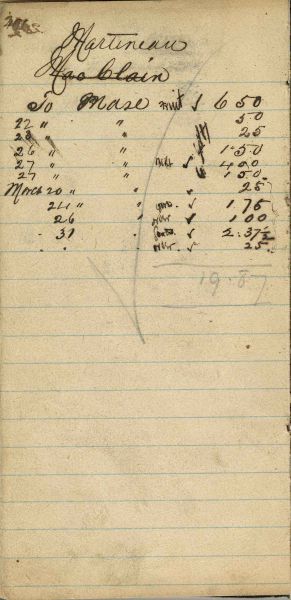 Martineau
Mac Clain
To Mdse √ 6 50
22 " " 50
23 " " 25
26 " " 1 50
27 " " √ 4 00
27 " 1 50
March 20 " " 25
24 " " √ 1 75
26 √ 1 00
31 √ 2.37½
√ 25
19.87